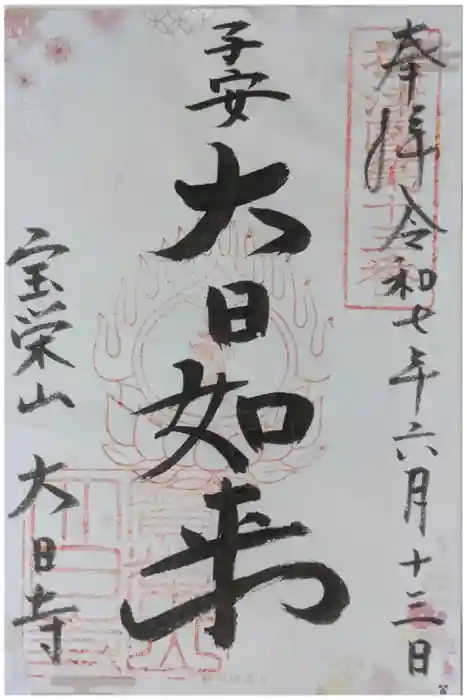 奉拝 令和七年六月十三日
子安
大日如来
宝栄山 大日寺